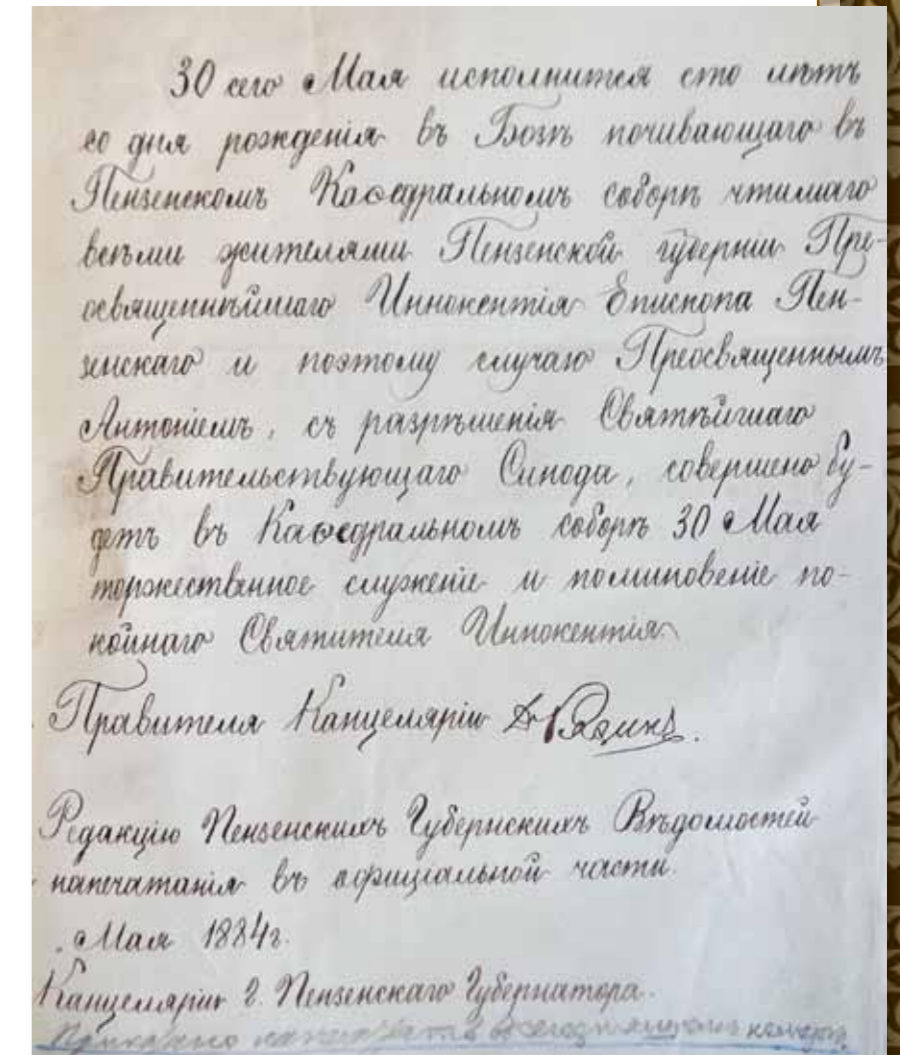 30 сего Мая исполнится сто лѣтъ
со дня рожденія въ Бозѣ почивающаго въ
Пензенскомъ Каѳедральномъ соборѣ чтимаго
всѣми жителями Пензенской губерніи Пре-
освященнѣйшаго Иннокентія Епископа Пен-
зенскаго и поэтому случаю Преосвященнымъ
Антоніемъ, съ разрѣшенія Святѣйшаго
Правительствующаго Синода, совершено бу-
детъ въ Каѳедральномъ соборѣ 30 Мая
торжественное служеніе и поминовеніе по-
койнаго Святителя Иннокентія
Правителя Канцеляріи
Редакцію Пензенскихъ Губернскихъ Вѣдомостей
напечатанія въ официальной части.
Мая 1884г.
Канцелярія г. Пензенскаго Губернатора.